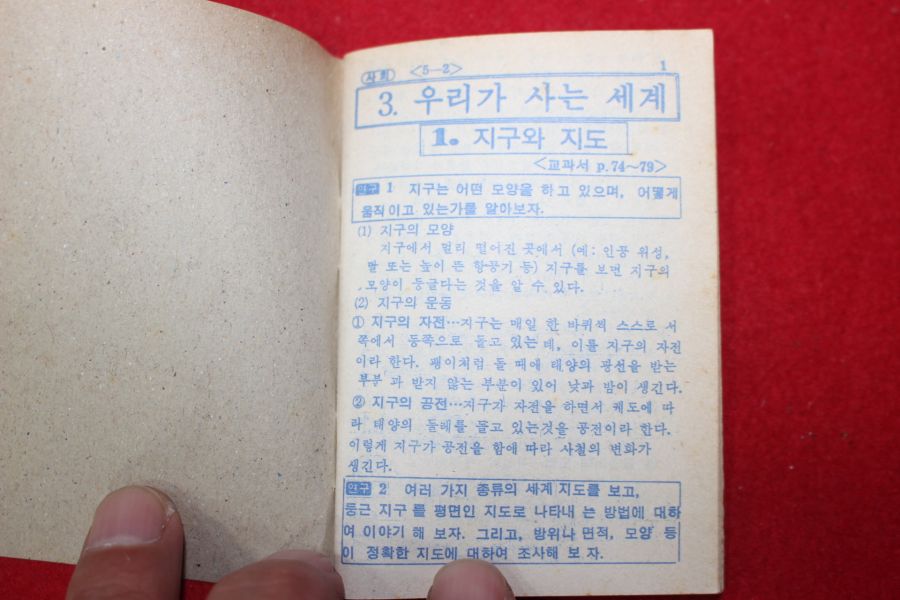 사회 <5—2> 1
3. 우리가 사는 세계
1. 지구와 지도
<교과서 p.74~79>
연구 1 지구는 어떤 모양을 하고 있으며, 어떻게
움직이고 있는가를 알아보자.
(1) 지구의 모양
지구에서 멀리 떨어진 곳에서 (예: 인공 위성,
달 또는 높이 뜬 항공기 등) 지구를 보면 지구의
모양이 둥글다는 것을 알 수 있다.
(2) 지구의 운동
① 지구의 자전…지구는 매일 한 바퀴씩 스스로 서
쪽에서 동쪽으로 돌고 있는데, 이를 지구의 자전
이라 한다. 팽이처럼 돌 때에 태양의 광선을 받는
부분과 받지 않는 부분이 있어 낮과 밤이 생긴다.
② 지구의 공전…지구가 자전을 하면서 궤도에 따
라 태양의 둘레를 돌고 있는것을 공전이라 한다.
이렇게 지구가 공전을 함에 따라 사철의 변화가
생긴다.
연구 2 여러 가지 종류의 세계 지도를 보고,
둥근 지구를 평면인 지도로 나타내는 방법에 대하
여 이야기 해 보자. 그리고, 방위나 면적, 모양 등
이 정확한 지도에 대하여 조사해 보자.